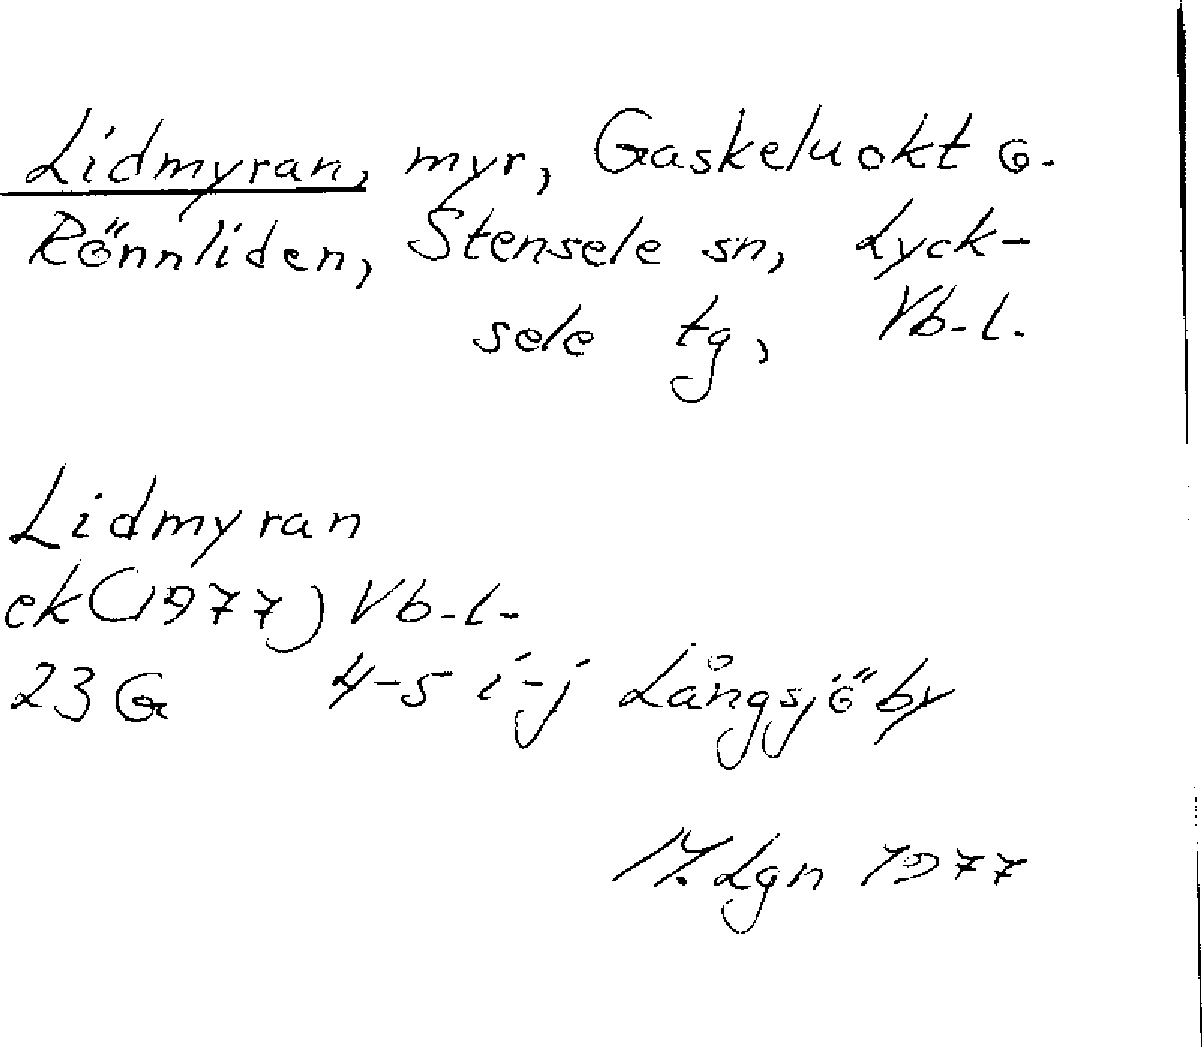 Lidmyran, myr, Gaskeluokt o.
Rönnliden, Stensele sn, Lyck-
sele tg, Vb-l.
Lidmyran
ek (1977) Vb-l-
23 G 4-5 i-j Långsjöby
M. Lgn 1977